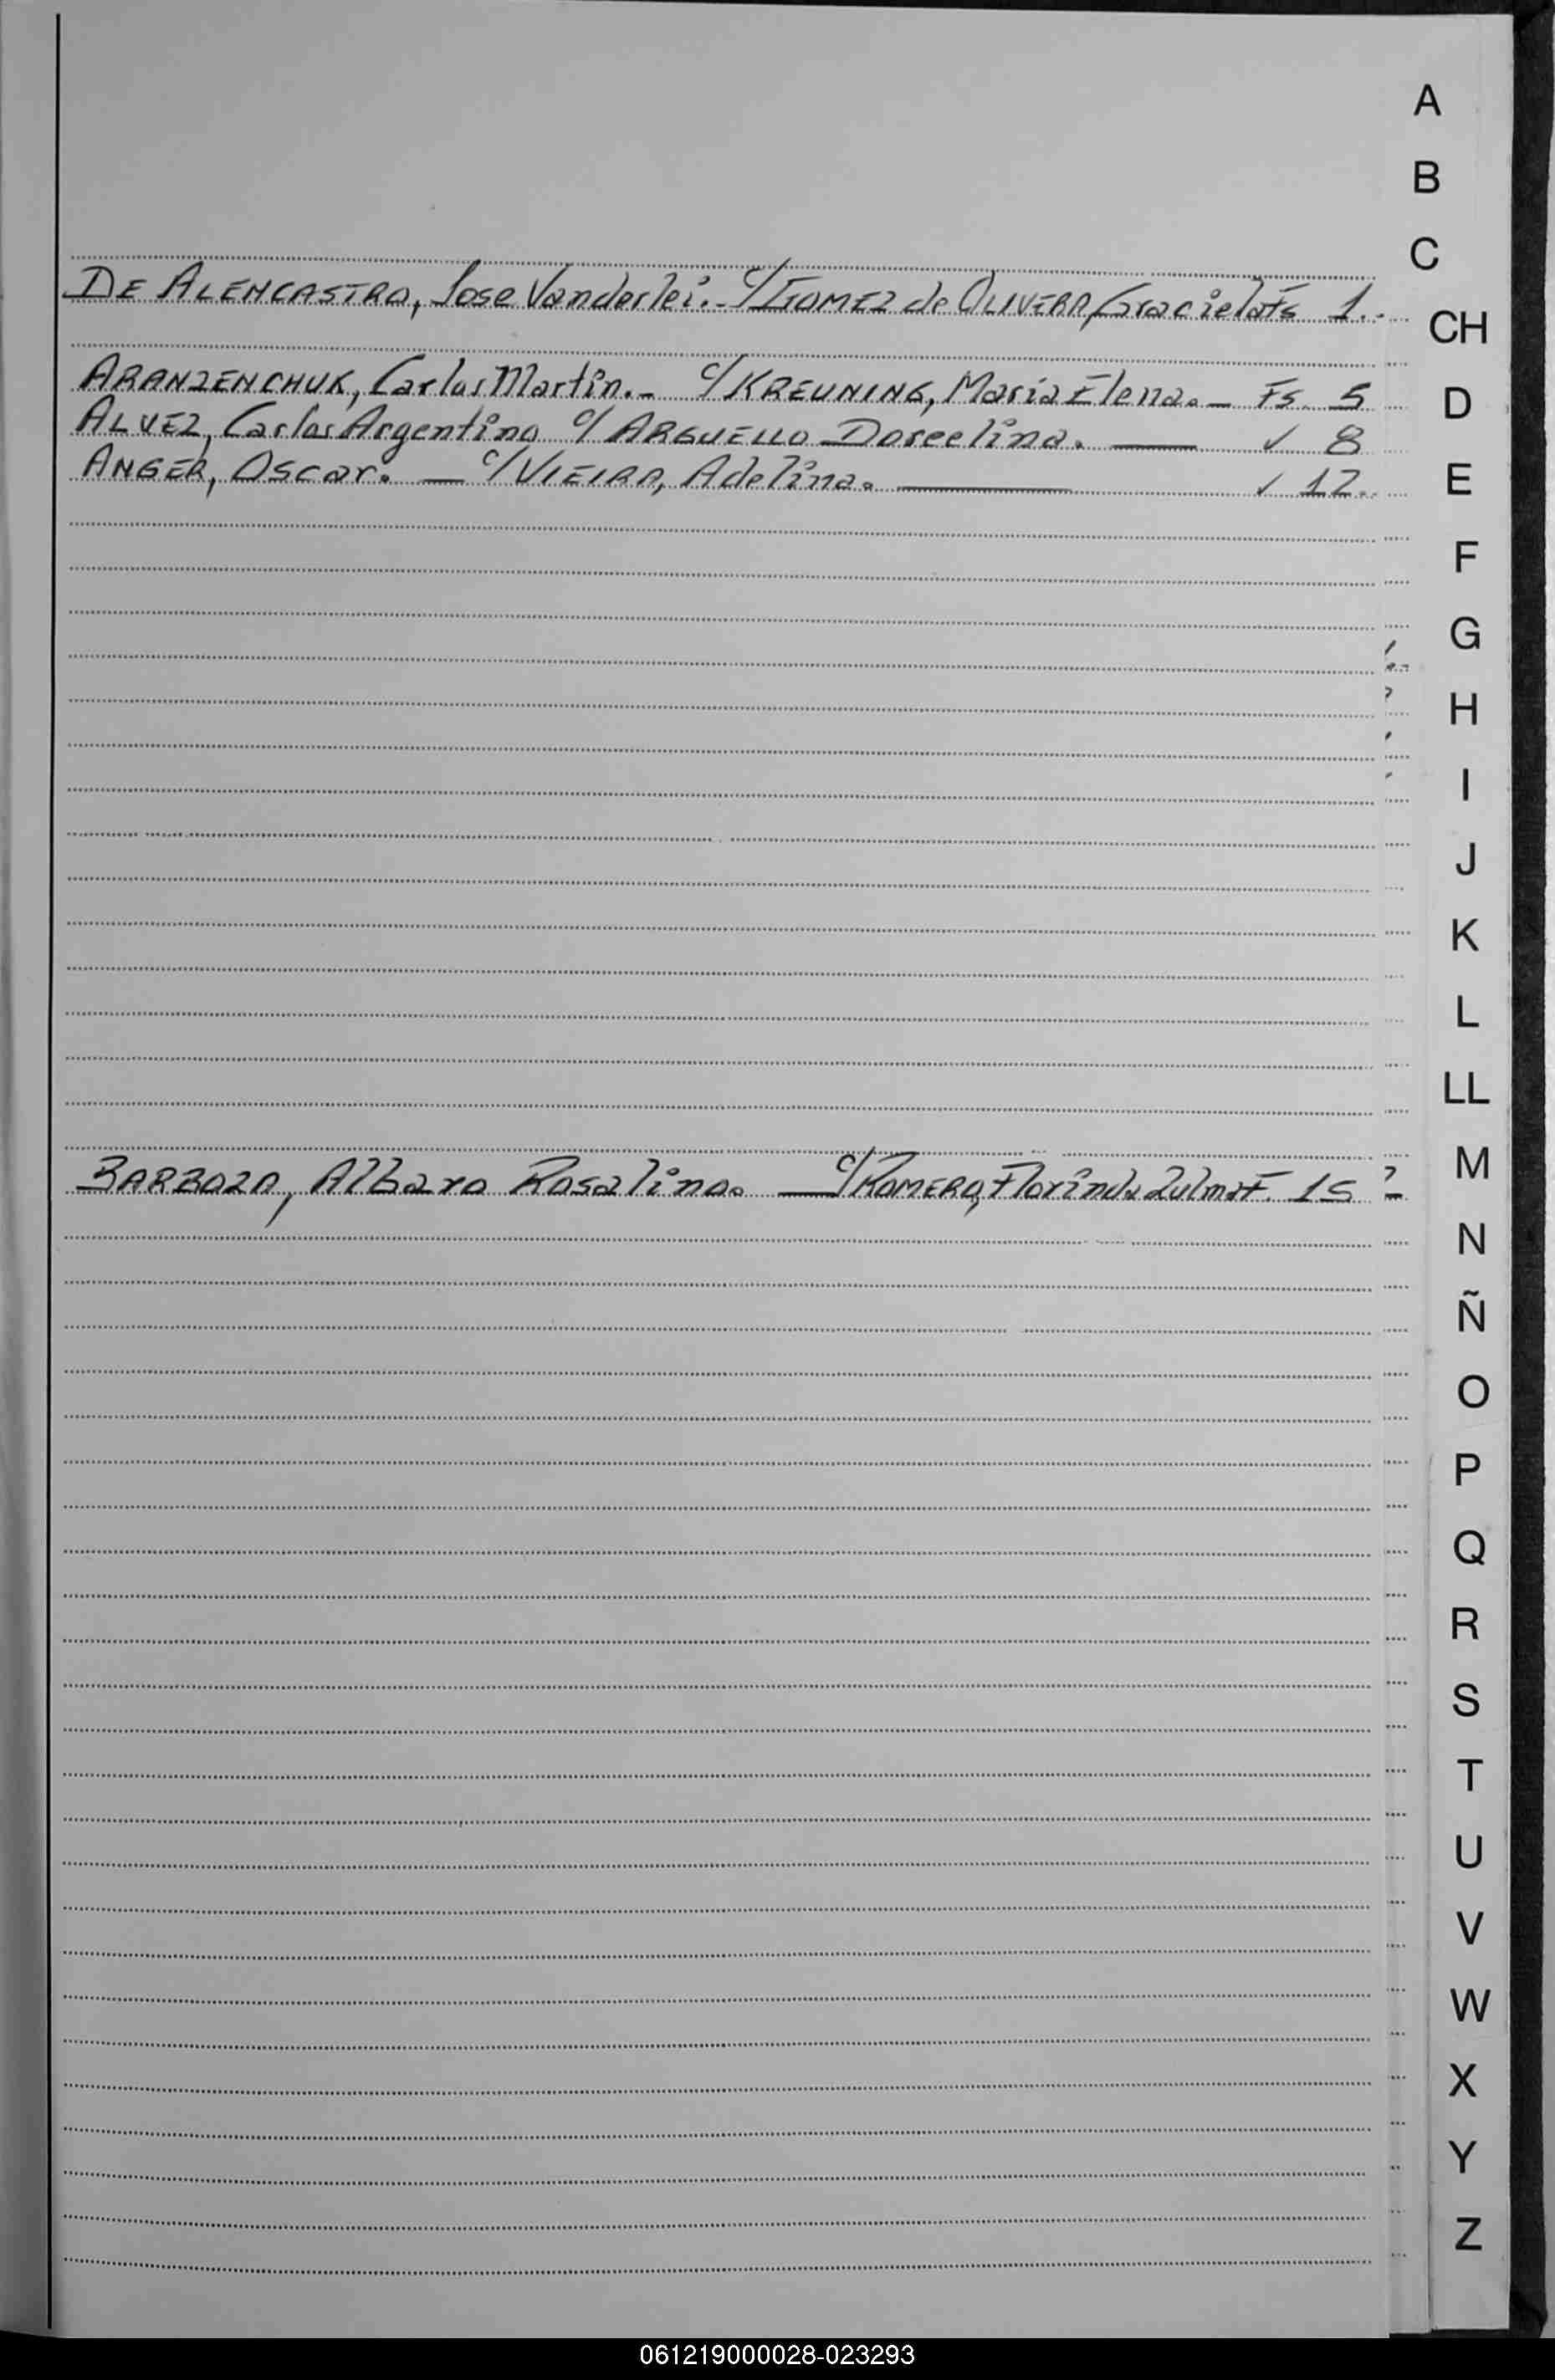 A
B
C
DE ALENCASTRO, Jose Vanderlei.- c/ GOMEZ de OLIVERA, Graciela Fs 1.-
CH
ARANZENCHUK, Carlos Martin.- c/ KREUNING, Maria Elena.- Fs 5
D
ALVEZ, Carlos Argentino c/ ARGUELLO Dorcelina. — ✓ 8
ANGER, Oscar. — c/ VIEIRA, Adelina. — ✓ 12.
E
F
G
H
I
J
K
L
LL
M
BARBOZA, Albaro Rosalino. — c/ ROMERO, Florinda Zulma F. 15
N
Ñ
O
P
Q
R
S
T
U
V
W
X
Y
Z
061219000028-023293